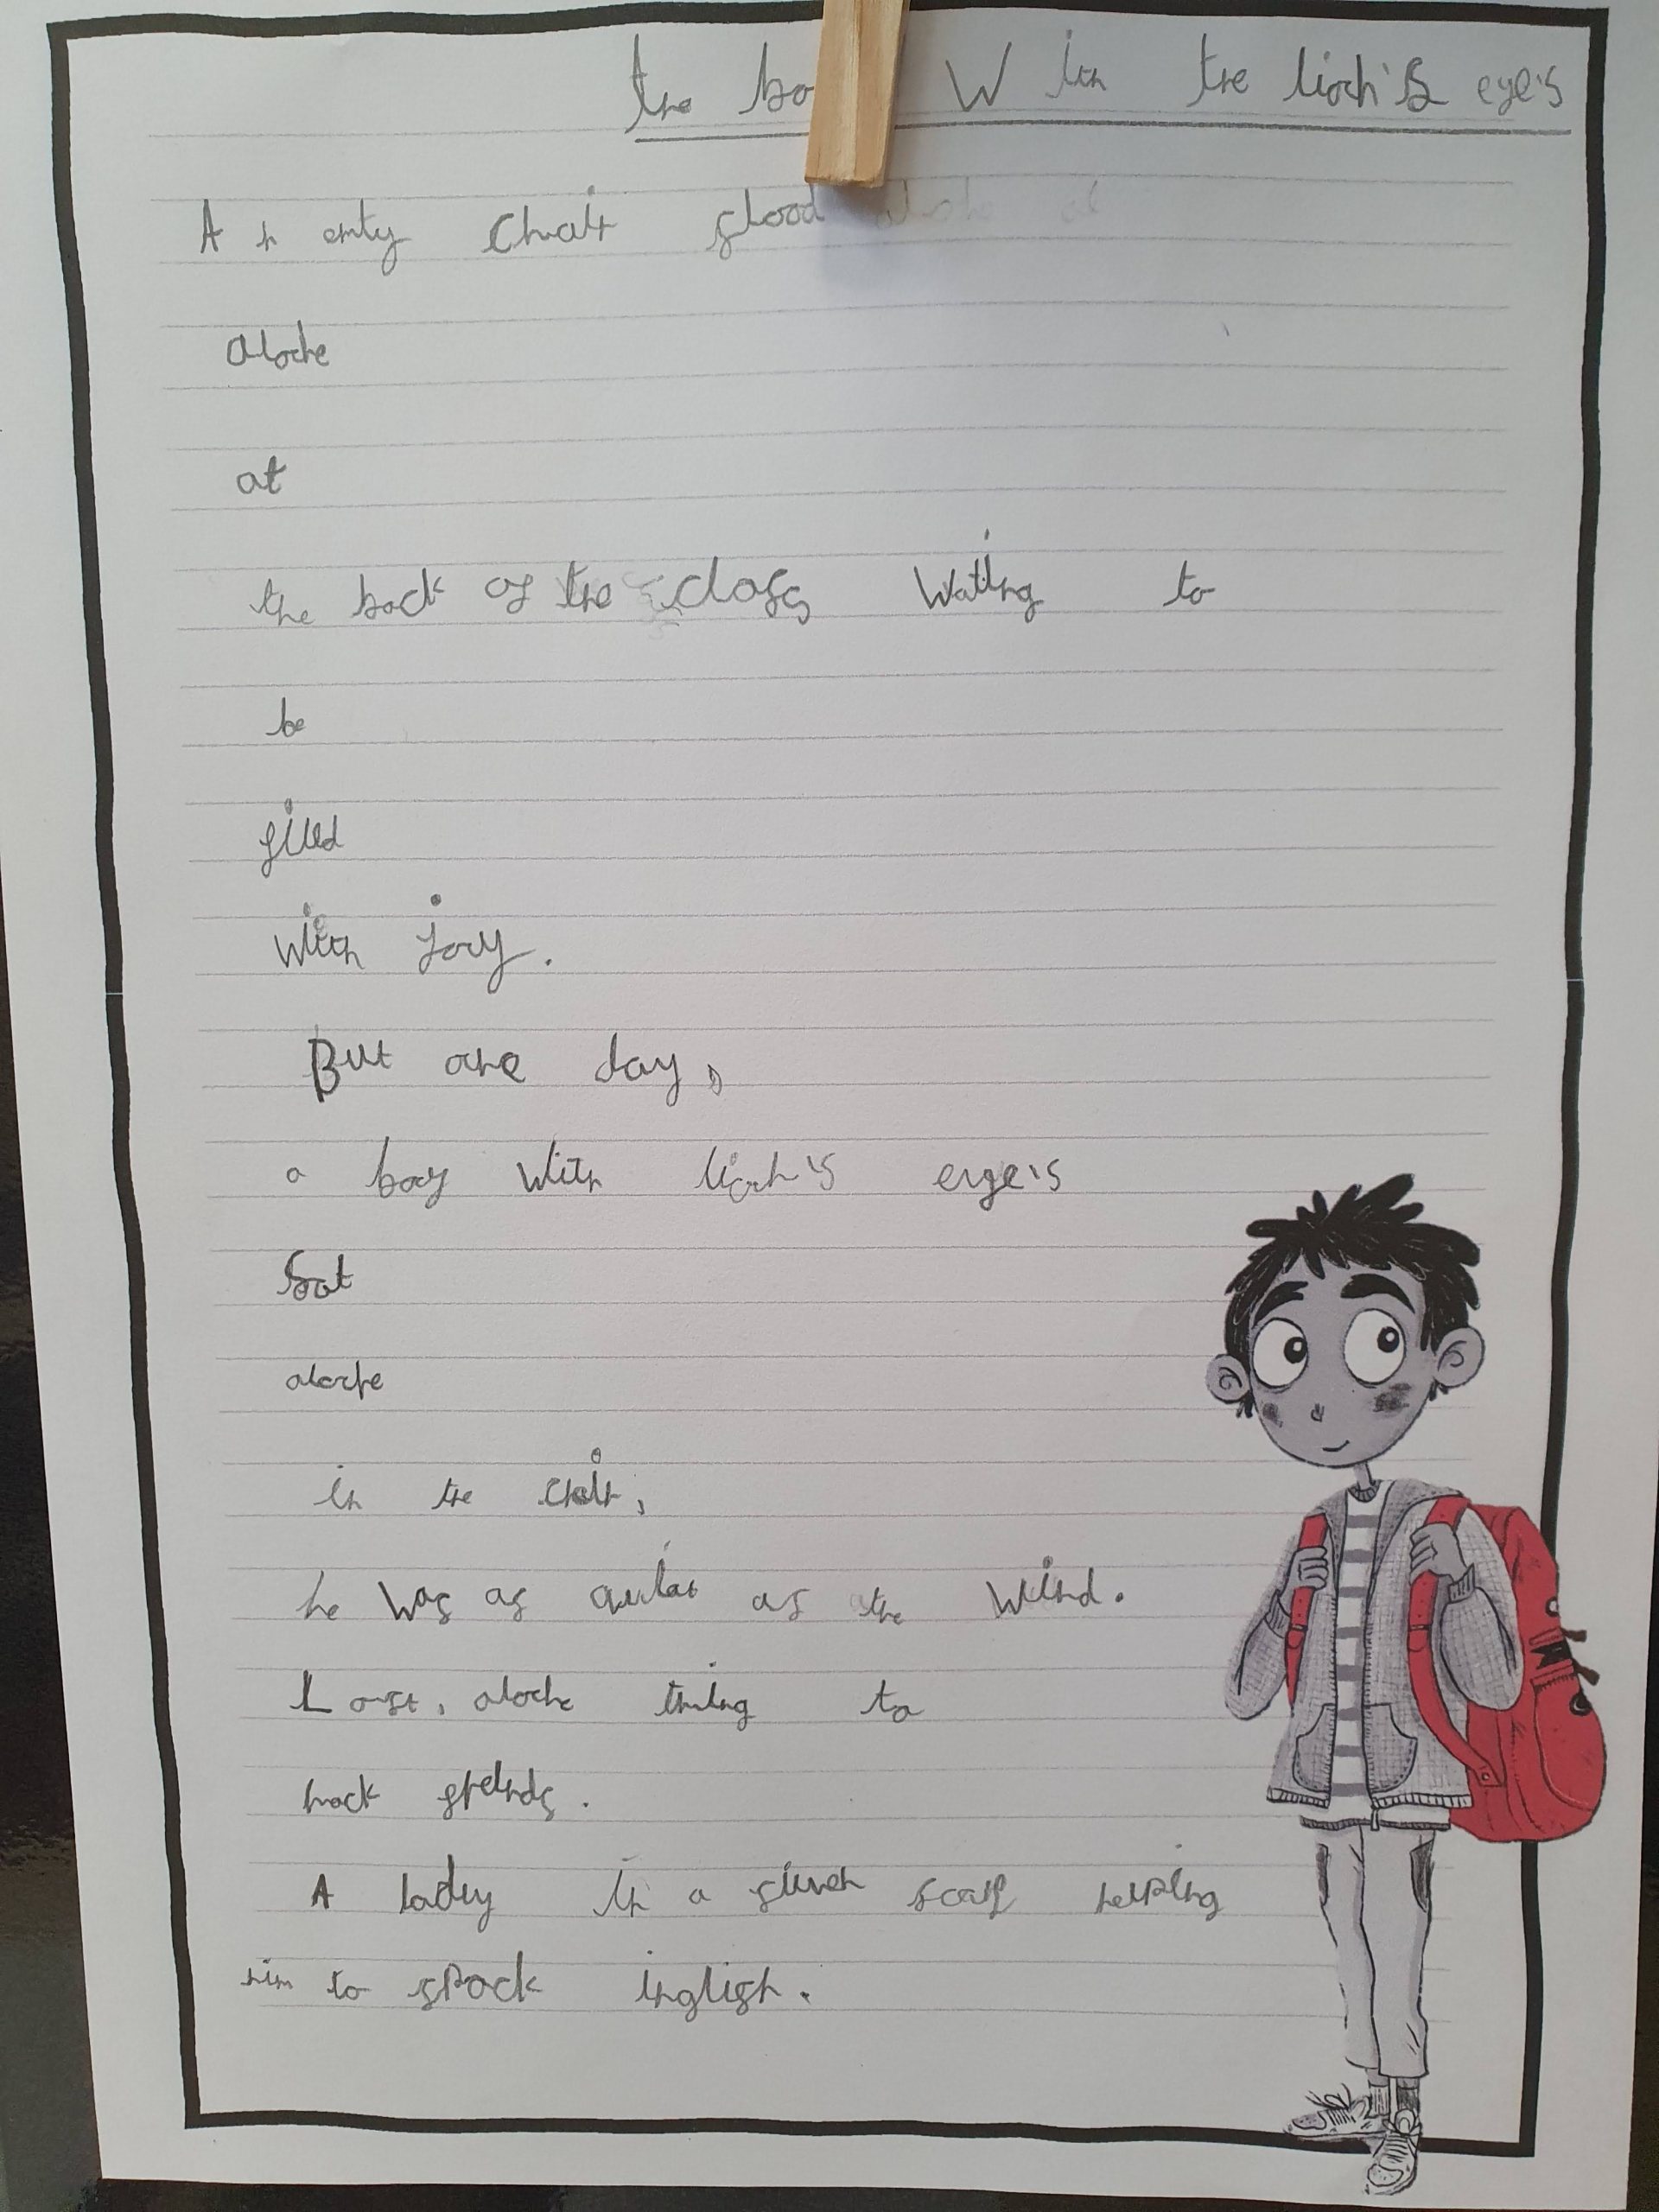 the bo W ith the lion's eye's
An emty chair stood
alone
at
the back of the class waiting to
be
filled
with joy.
But one day,
a boy with lion's eye's
Sat
alone
in the chair,
he was as quiat as the wind.
Lost, alone thing to
mack friends.
A ladey in a silver scarf helping
him to speack inglish.